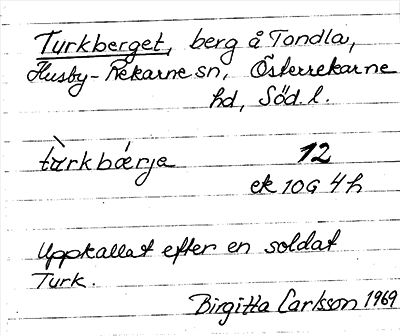 Turkberget, berg å Tondla,
Husby-Rekarne sn, Österrekarne
hd, Söd. l.
tùrkbǽrja 12
ek 10G 4h
Uppkallat efter en soldat
Turk.
Birgitta Carlsson 1969